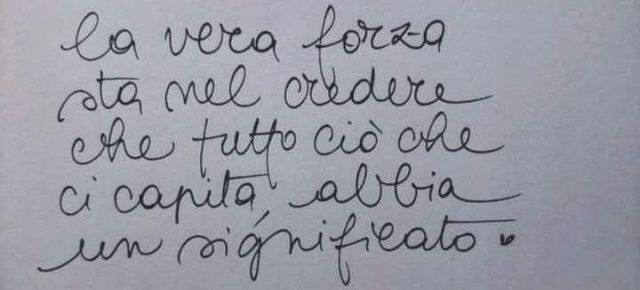 la vera forza
sta nel credere
che tutto ciò che
ci capita, abbia
un significato.